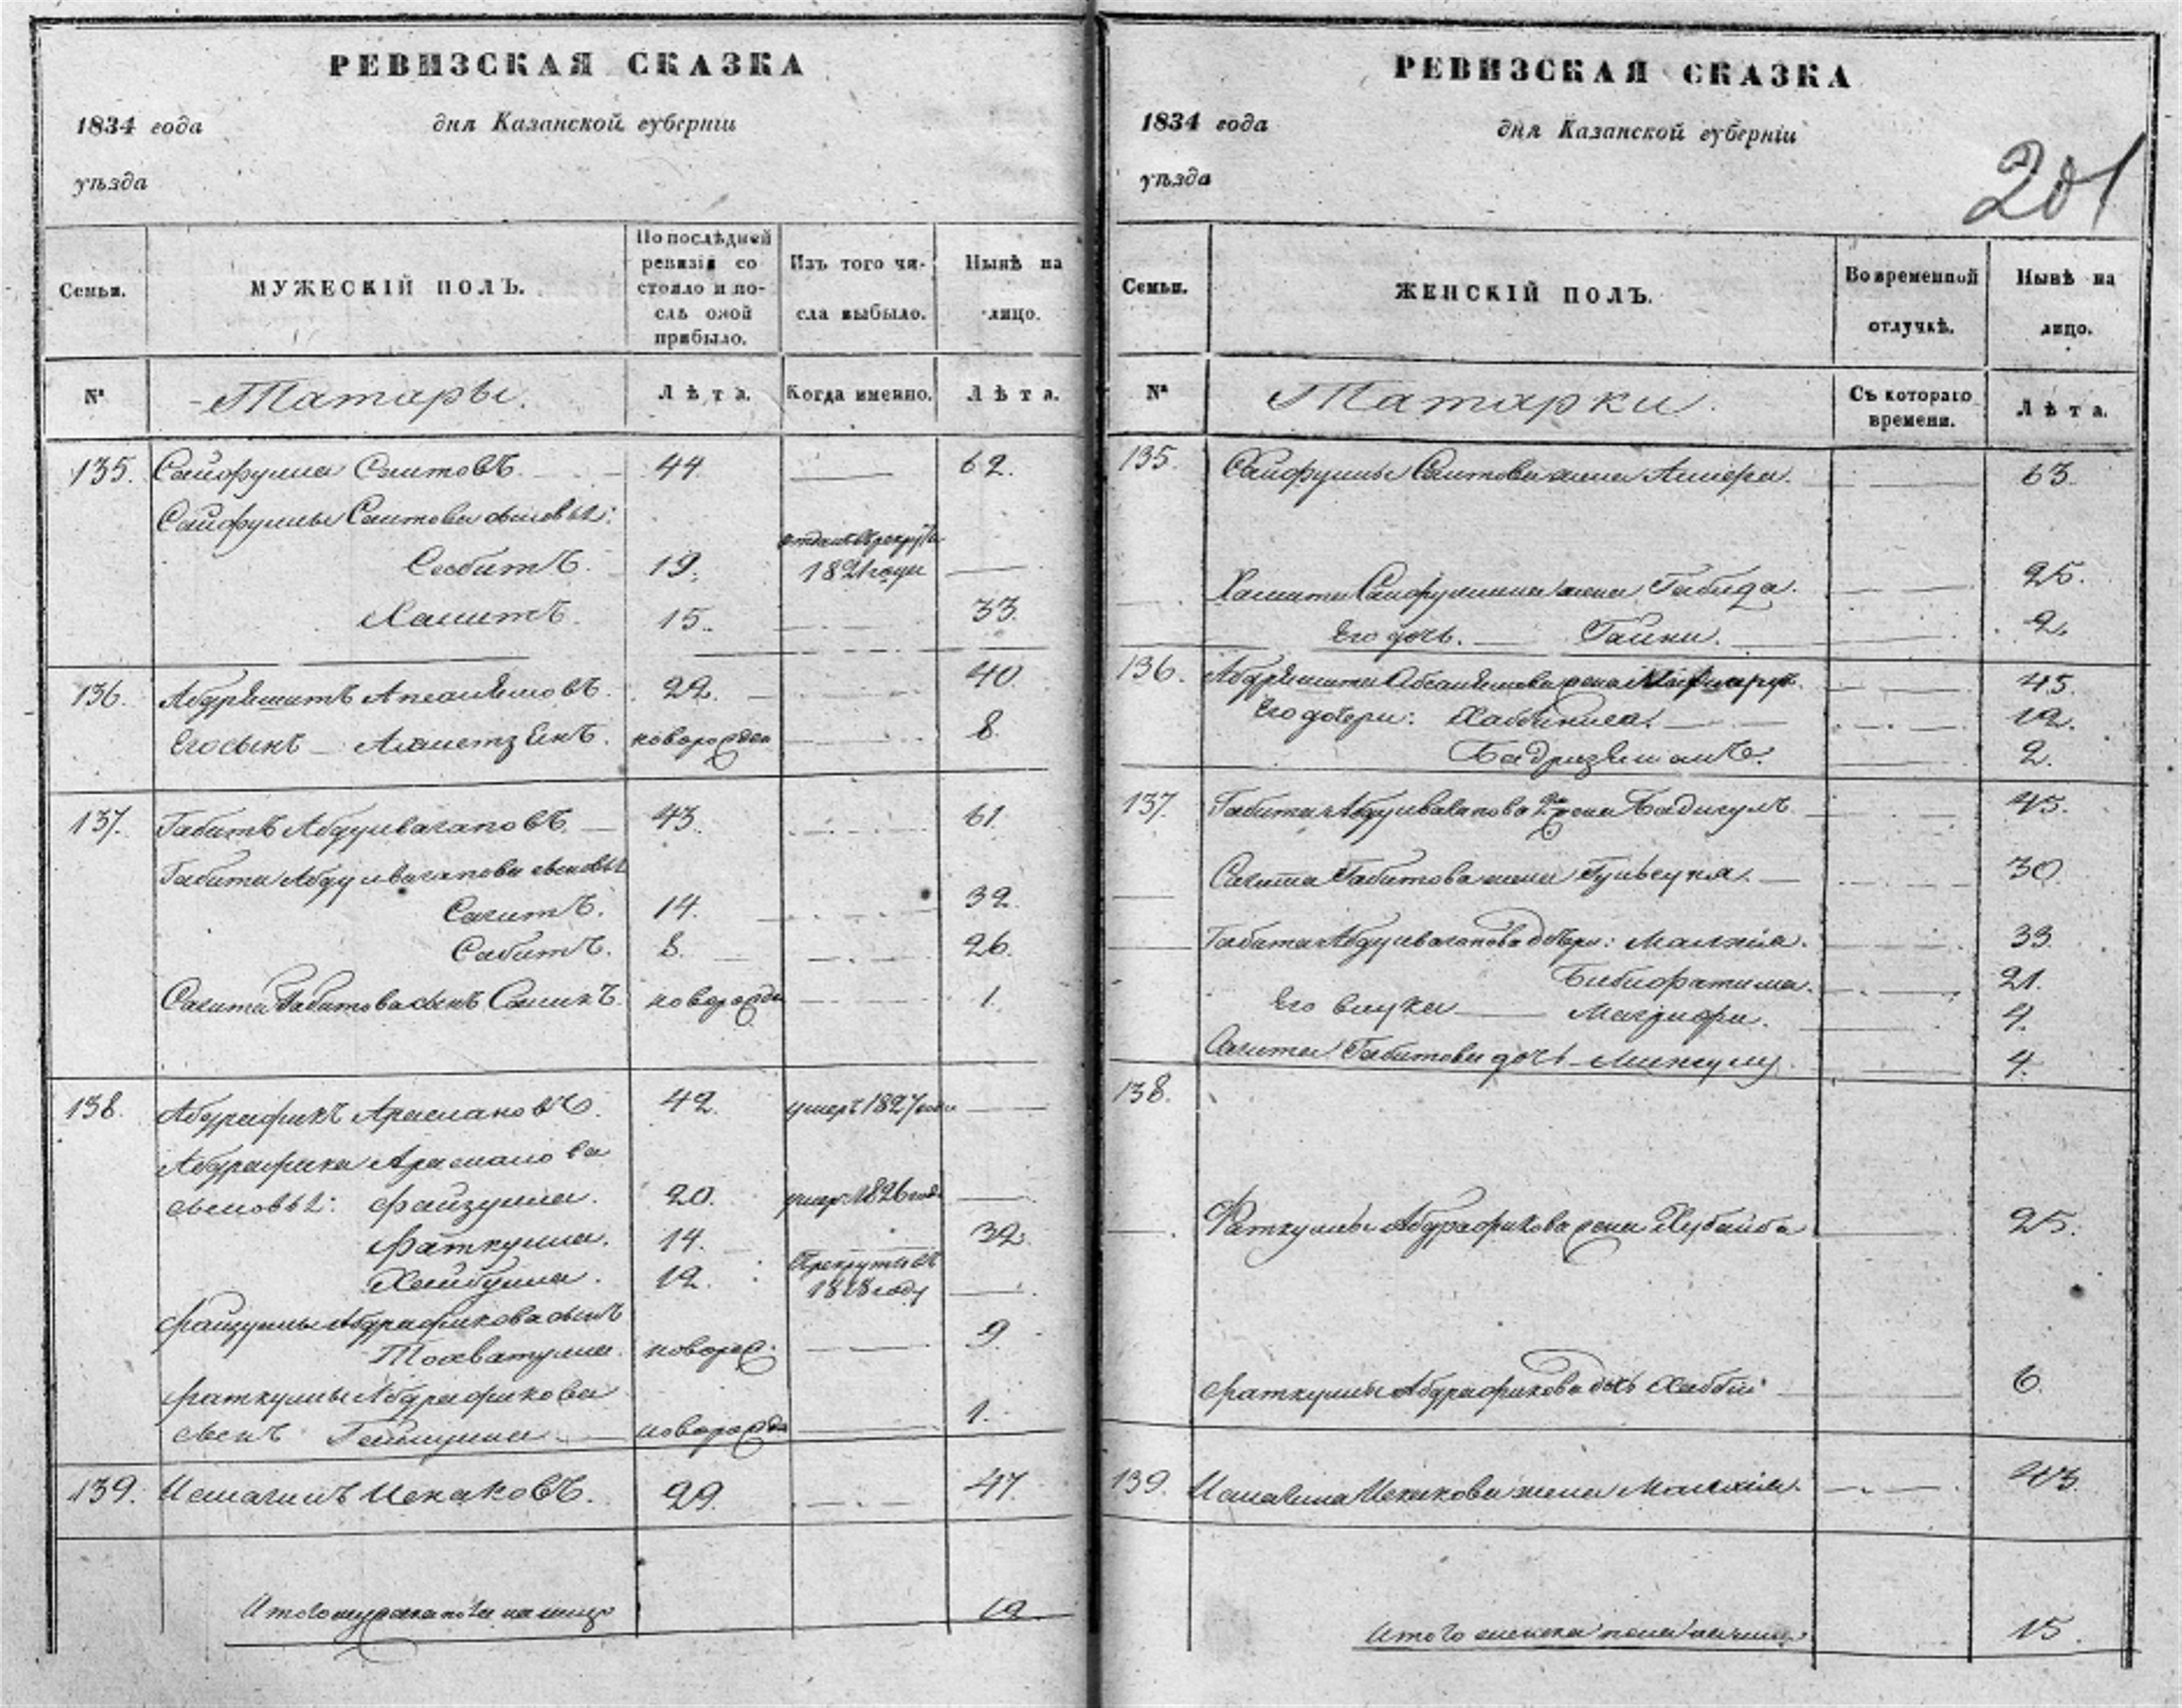 РЕВИЗСКАЯ СКАЗКА
1834 года дня Казанской губернiи
уѣзда
Семьи.
МУЖЕСКIЙ ПОЛЪ.
По последней
ревизiи со
стояло и по-
слѣ оной
прибыло.
Изъ того чи-
сла выбыло.
Нынѣ на
лицо.
№
Татары.
Лѣта.
Когда именно.
Лѣта.
135. Сайфулла Саитовъ 44. 62.
Сайфуллы Саитова сыновья:
Сабитъ. 19. 1821 года
Хамитъ. 15. 33.
136. Абдряшитъ Апсалямовъ. 22. 40.
Его сынъ Ахметзянъ. новорожден 8.
137. Габитъ Абдулвагаповъ 43. 61.
Габита Абдулвагапова сыновья
Сагитъ. 14. 32.
Сабитъ. 8. 26.
Сагита Габитова сынъ Салихъ. новорожден 1.
138. Абдрафикъ Арслановъ. 42. умеръ 1827 года
Абдрафика Арсланова
сыновья: Файзулла. 20. умеръ 1826 года
Фаткулла. 14. 32.
Хайбулла. 12. Врекруты въ
1828 году
Файзуллы Абдрафикова сынъ
Тохватулла. новорож. 9.
Фаткуллы Абдрафикова
сынъ новорожде 1.
139. Исмагилъ Исхаковъ. 29. 47.
Итого мужеска пола на лицо 12
РЕВИЗСКАЯ СКАЗКА
1834 года дня Казанской губернiи
уѣзда
201
Семьи.
ЖЕНСКIЙ ПОЛЪ.
Во временной
отлучкѣ.
Нынѣ на
лицо.
№
Татарки.
Съ котораго
времени.
Лѣта.
135. Сайфуллы Саитова жена 63.
Хамита Сайфуллина жена Габида. 25.
Его дочь. Гайни. 2.
136. Абдряшита Абсалямова жена 45.
Его дочери: Хаббиниса. 12.
Бадризямалъ. 2.
137. Габита Абдулвагапова 2я жена Бадигулъ 45.
Сагита Габитова жена 30.
Габита Абдулвагапова дочери: Малхiя. 33.
Бибифатима. 21.
Его внука 4.
Сагита Габитова дочь Мингулу 4.
138.
Фаткуллы Абдрафикова жена Хубайба 25.
Фаткуллы Абдрафикова дочь 6.
139. Исмагила Исхакова жена 43.
Итого женска пола на лицо 15.